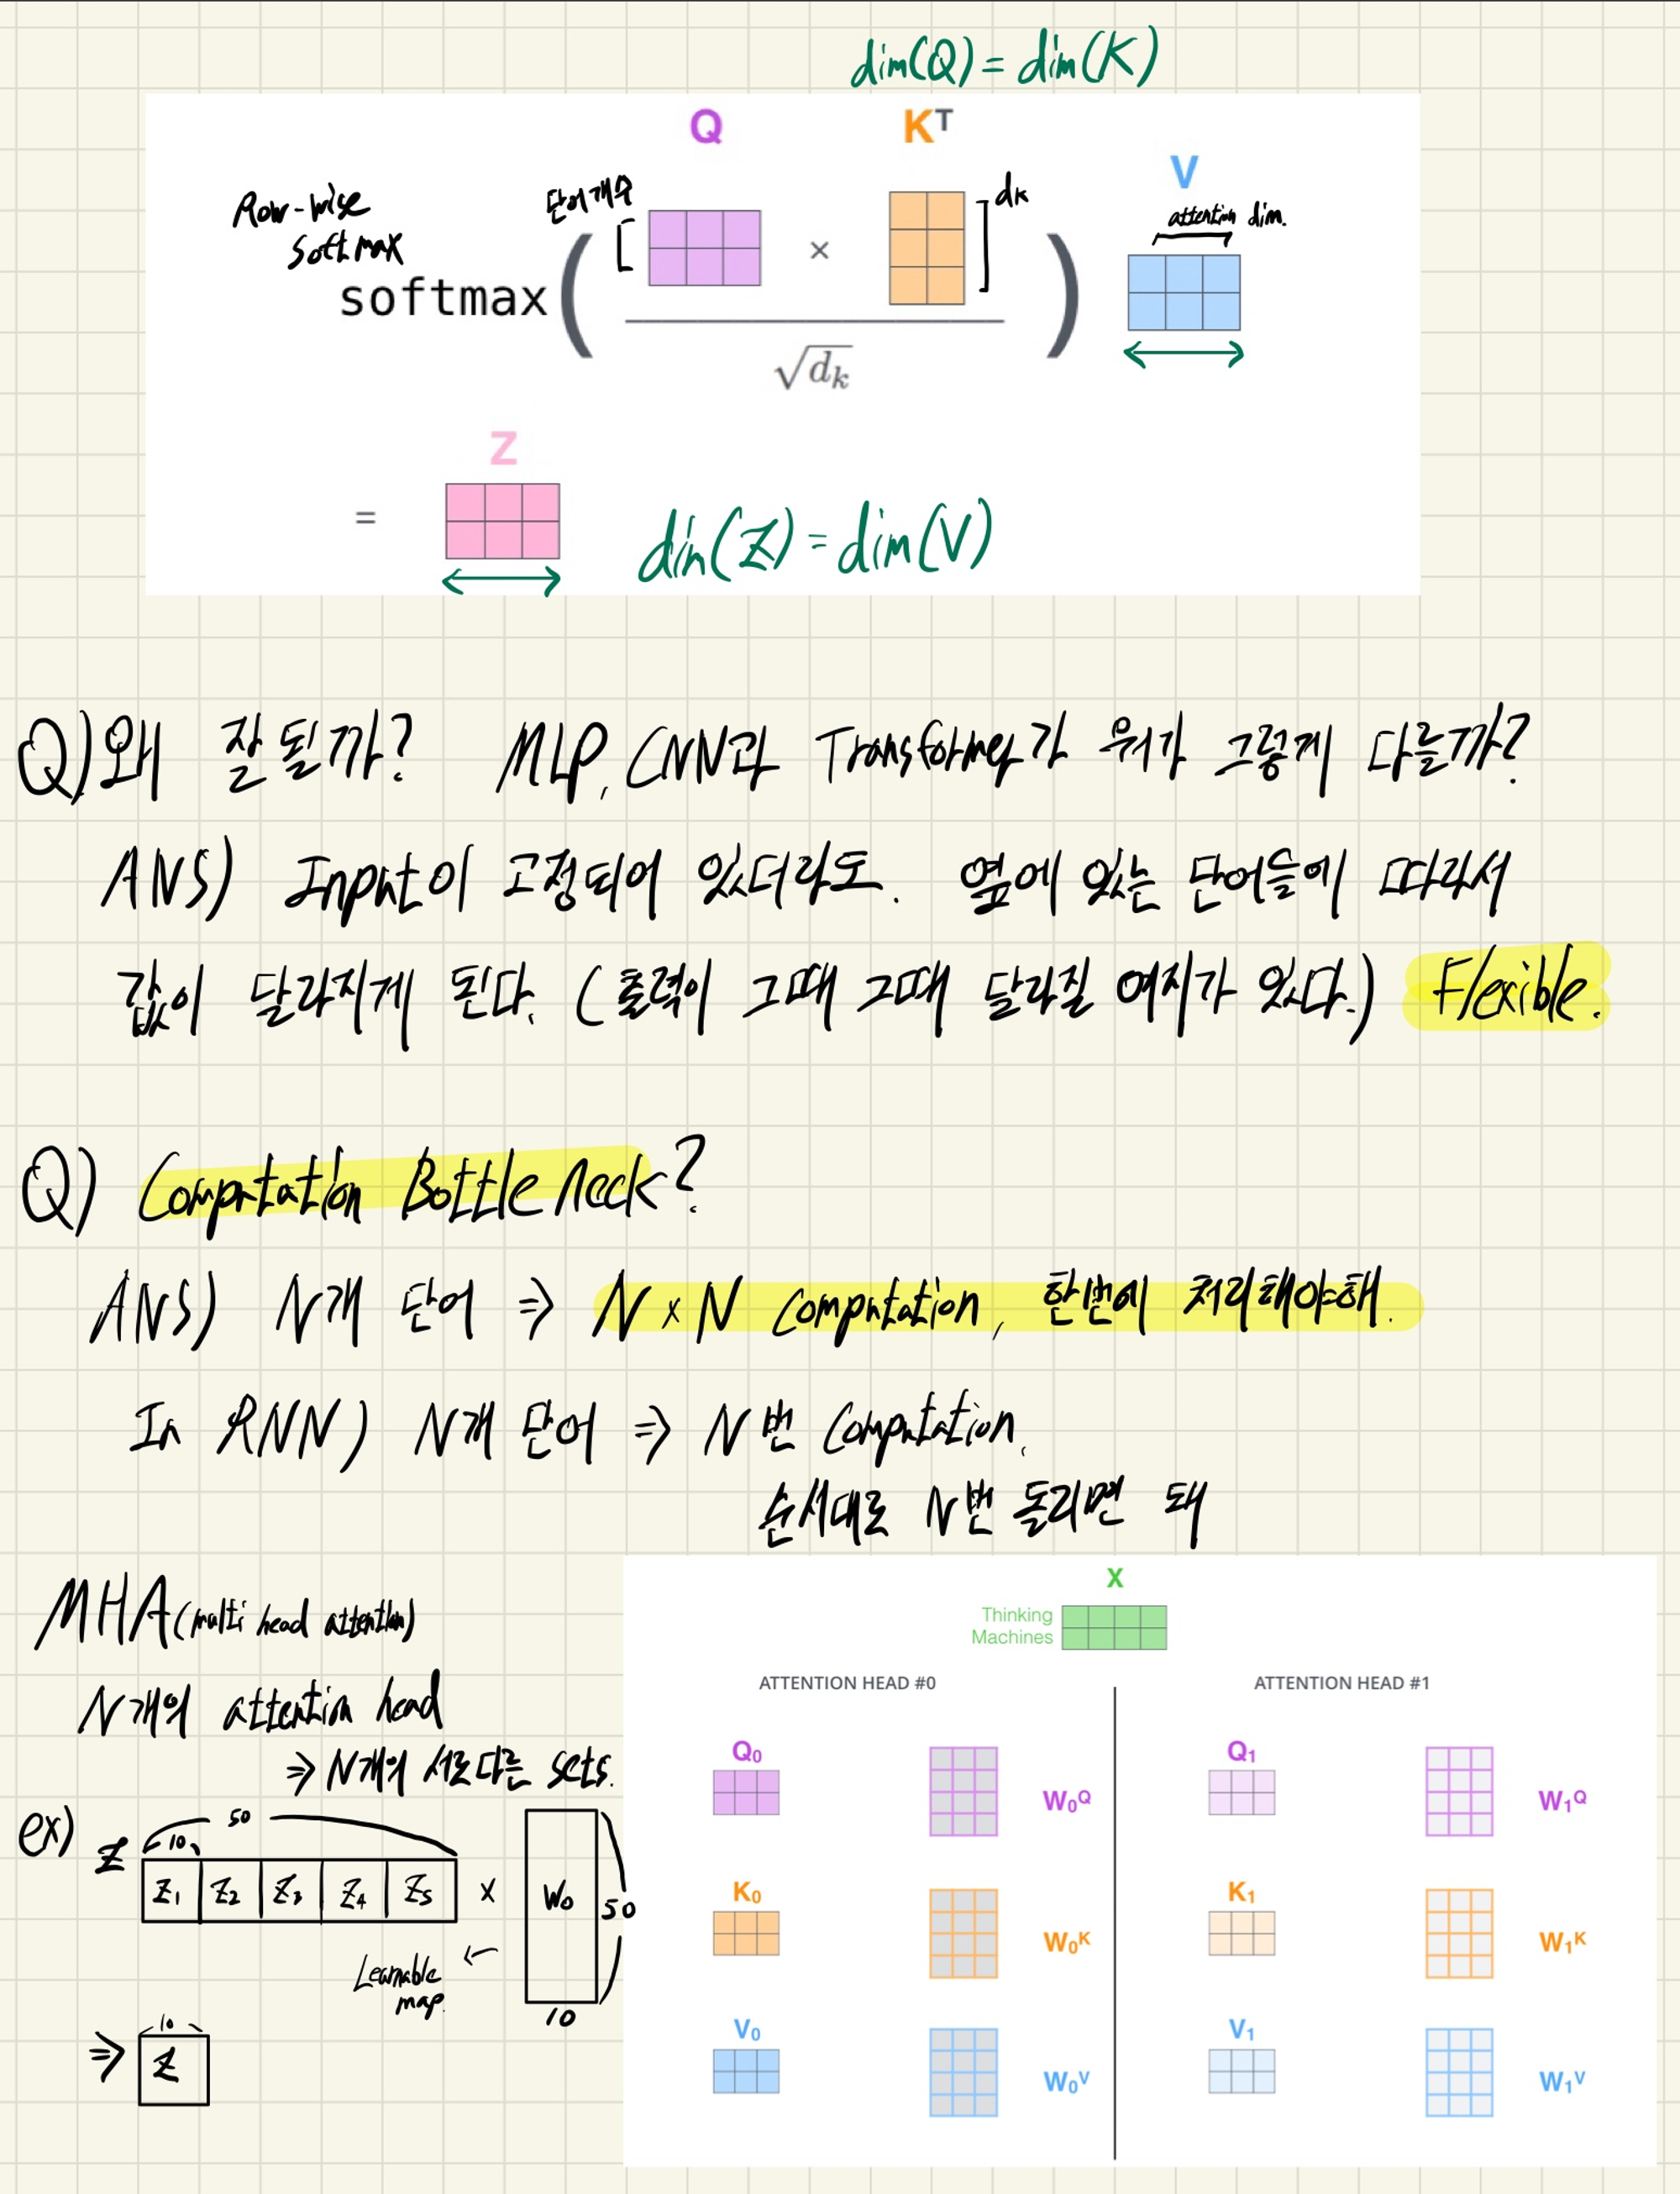 dim(Q) = dim(K)
Q
K^T
V
Row-wise
softmax
단어개수
dk
attention dim.
softmax( [ × ] )
√d_k
Z
=
dim(Z) = dim(V)
Q) 왜 잘 될까? MLP, CNN과 Transformer가 뭐가 그렇게 다를까?
ANS) Input이 고정되어 있더라도. 옆에 있는 단어들에 따라서
값이 달라지게 된다. (출력이 그때 그때 달라질 여지가 있다.) Flexible.
Q) Computation Bottle neck?
ANS) N개 단어 ⇒ N×N Computation, 한번에 처리해야해.
In RNN) N개 단어 ⇒ N번 Computation.
순서대로 N번 돌리면 돼
MHA (multi head attention)
N개의 attention head
⇒ N개의 서로 다른 sets.
ex)
50
10
Z
Z1 Z2 Z3 Z4 Z5 × W0 50
10
Learnable ←
map.
10
⇒ Z
X
Thinking
Machines
ATTENTION HEAD #0
ATTENTION HEAD #1
Q0
W0^Q
Q1
W1^Q
K0
W0^K
K1
W1^K
V0
W0^V
V1
W1^V